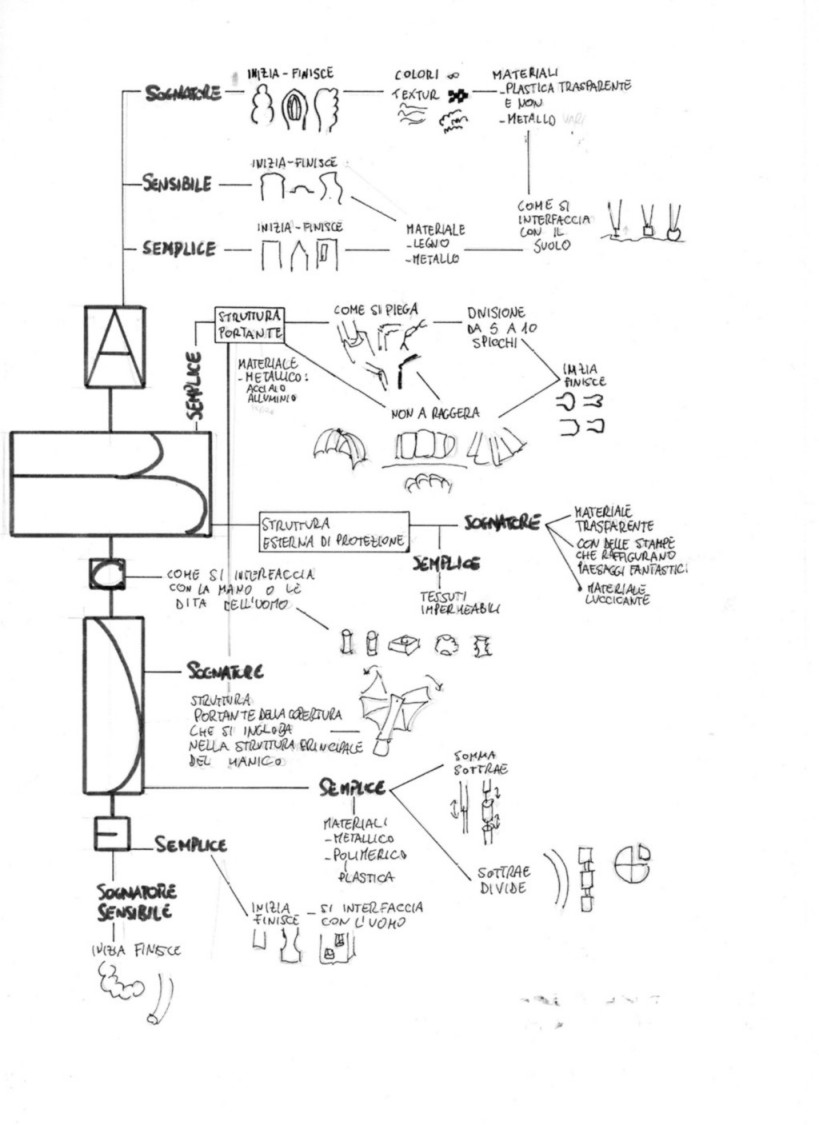 SOGNATORE
INIZIA - FINISCE
COLORI ∞
TEXTUR
MATERIALI
-PLASTICA TRASPARENTE
E NON
-METALLO
SENSIBILE
INIZIA-FINISCE
SEMPLICE
INIZIA - FINISCE
MATERIALE
-LEGNO
-METALLO
COME SI
INTERFACCIA
CON IL
SUOLO
A
SEMPLICE
STRUTTURA
PORTANTE
MATERIALE
-METALLICO:
ACCIAIO
ALLUMINIO
COME SI PIEGA
DIVISIONE
DA 5 A 10
SPICCHI
INIZIA
FINISCE
NON A RAGGERA
STRUTTURA
ESTERNA DI PROTEZIONE
SOGNATORE
MATERIALE
TRASPARENTE
CON DELLE STAMPE
CHE RAFFIGURANO
PAESAGGI FANTASTICI
MATERIALE
LUCCICANTE
SEMPLICE
TESSUTI
IMPERMEABILI
COME SI INTERFACCIA
CON LA MANO O LE
DITA DELL'UOMO
SOGNATORE
STRUTTURA
PORTANTE DELLA COPERTURA
CHE SI INGLOBA
NELLA STRUTTURA PRINCIPALE
DEL MANICO
SEMPLICE
MATERIALI
-METALLICO
-POLIMERICO
PLASTICA
SOMMA
SOTTRAE
SOTTRAE
DIVIDE
SEMPLICE
INIZIA
FINISCE
- SI INTERFACCIA
CON L'UOMO
SOGNATORE
SENSIBILE
INIZIA FINISCE